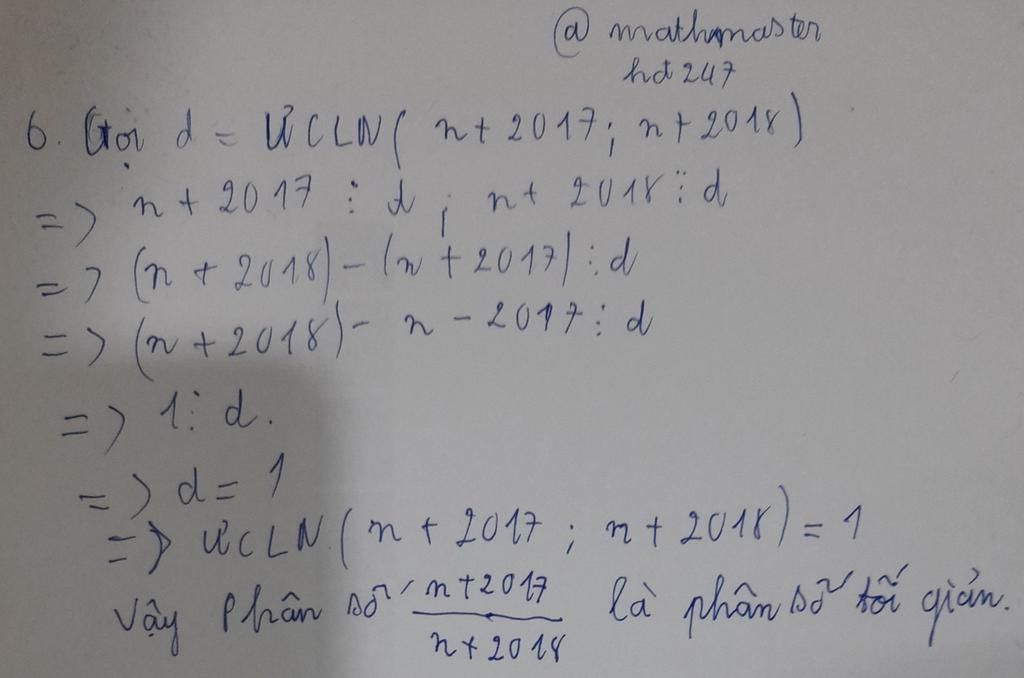 @ mathmaster
hd 247
6. Gọi d = ƯCLN( n + 2017; n + 2018)
=> n + 2017 ⋮ d ; n + 2018 ⋮ d
=> (n + 2018) - (n + 2017) ⋮ d
=> (n + 2018) - n - 2017 ⋮ d
=> 1 ⋮ d.
=> d = 1
=> ƯCLN (n + 2017 ; n + 2018) = 1
Vậy Phân số n+2017 / n+2018 là phân số tối giản.